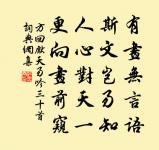 有畫無言語
斯文豈易知
人心對天一
更向畫前窺
方回先天易吟三十首
詞典網集